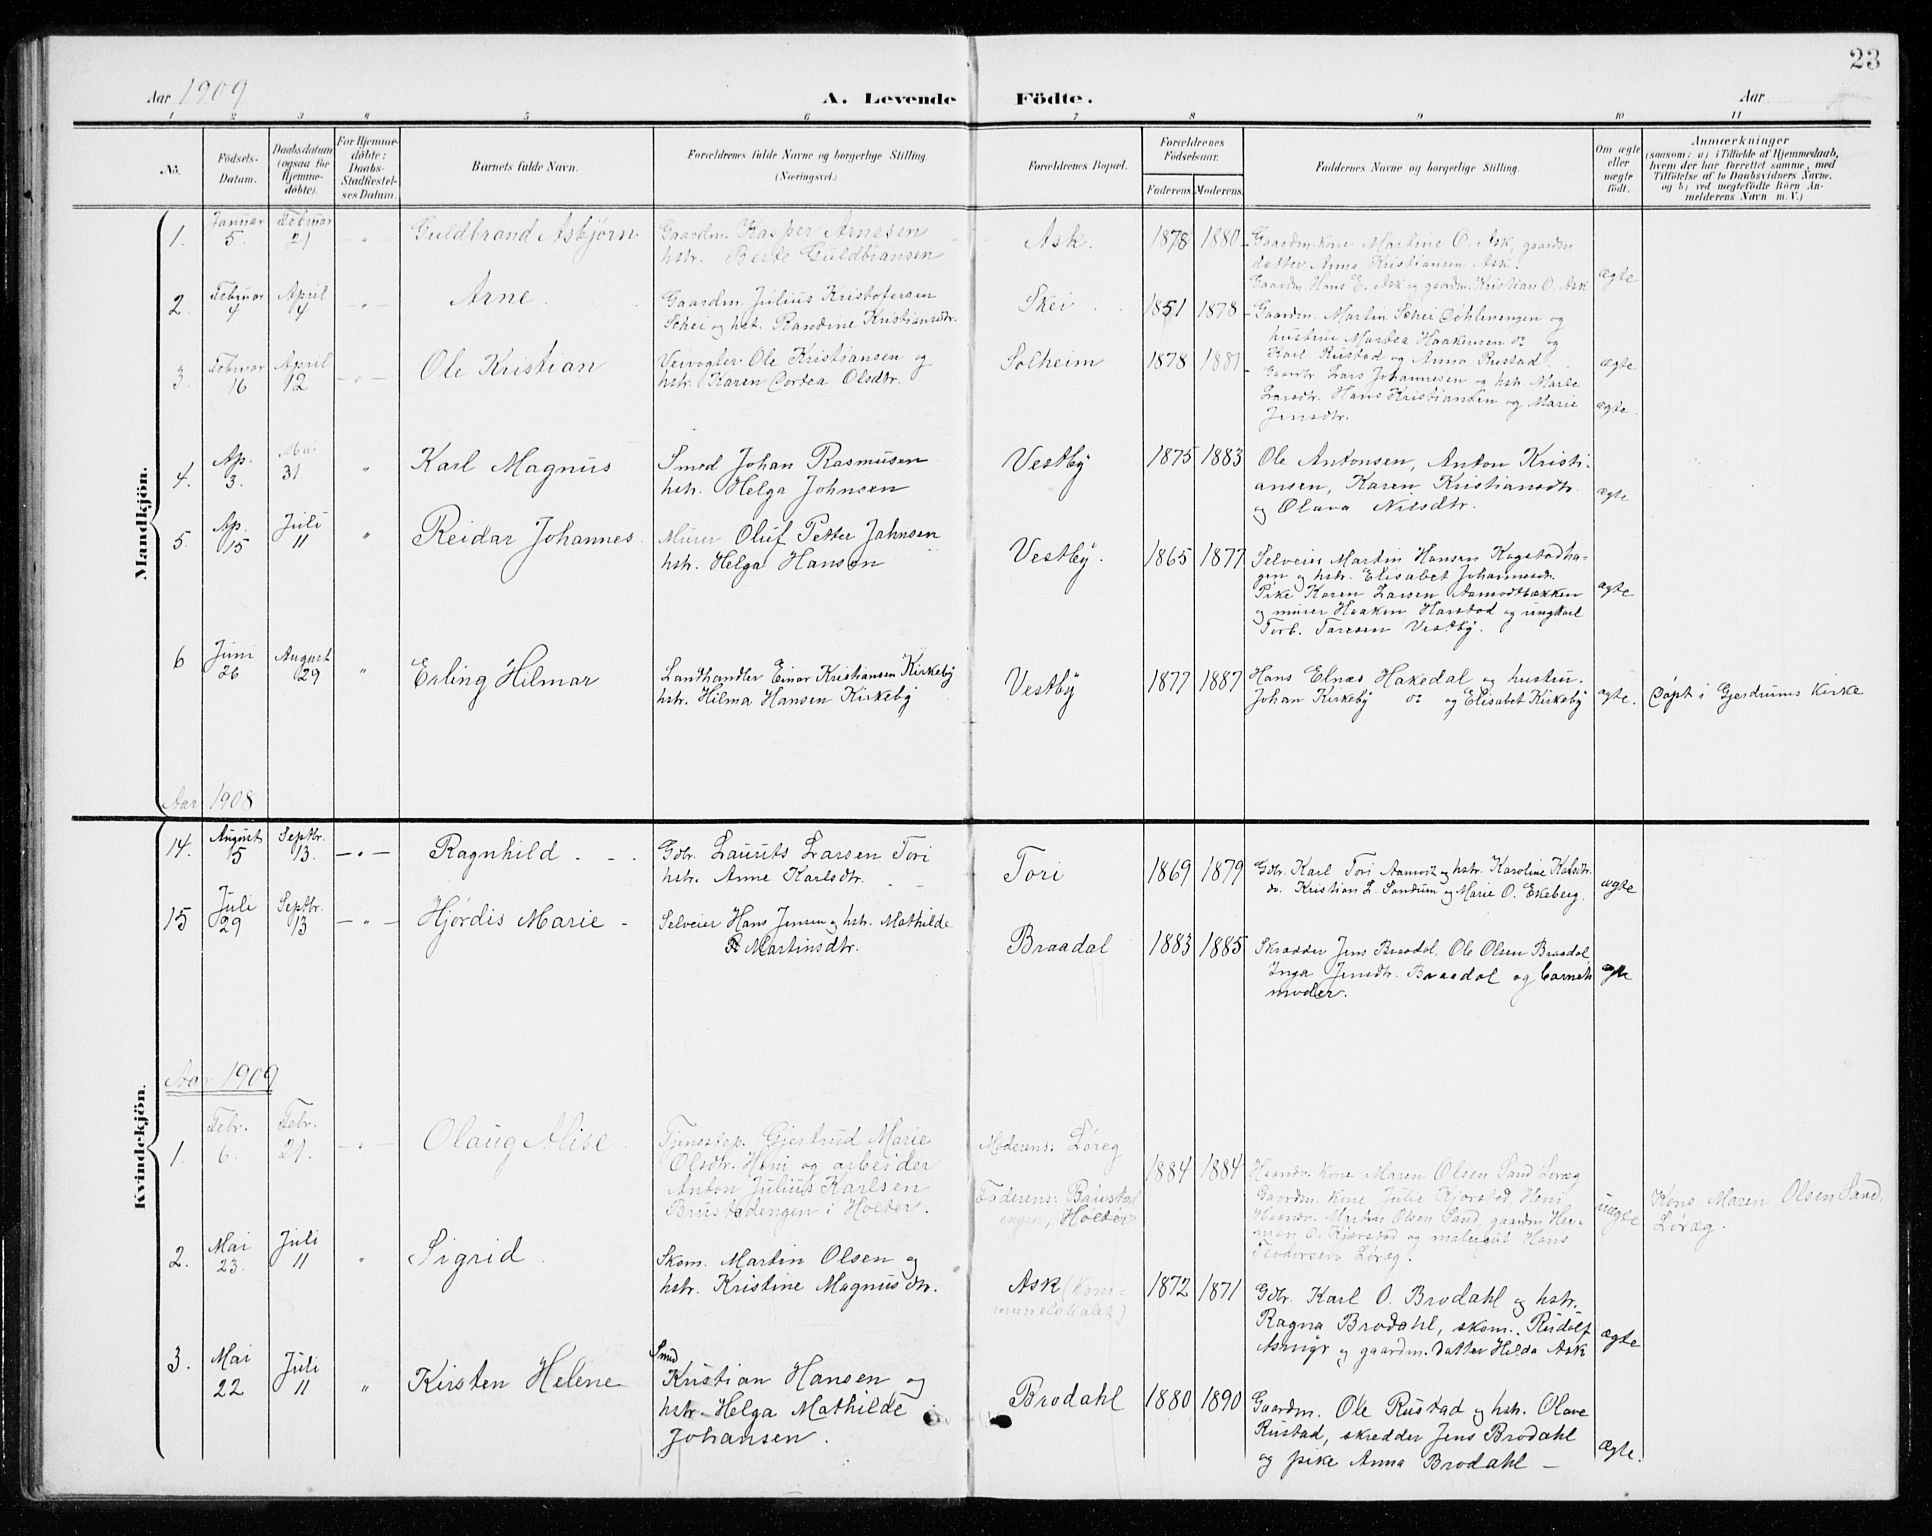 23
Aar 1909 A. Levende Födte. Aar
1 2 3 4 5 6 7 8 9 10 11
No. Födsels-Datum. Daabsdatum (ogsaa for Hjemmedöbte). For Hjemmedöbte: Daabs-Stadfæstelses Datum. Barnets fulde Navn. Forældrenes fulde Navne og borgerlige Stilling. (Næringsvei.) Forældrenes Bopæl. Forældrenes Födselsaar. Faderens. Moderens. Faddernes Navne og borgerlige Stilling. Om ægte eller uægte födt. Anmærkninger (saasom: a) i Tilfælde af Hjemmedaab, hvem der har forrettet samme, med Tilföielse af to Daabsvidners Navne, og b) ved uægtefödte Börn Anmelderens Navn m. V.)
Mandkjön.
1. Januar 5. Februar 21 - " - Guldbrand Asbjørn Gaardm. Kasper Arnesen
hstr. Berte Guldbransen Ask. 1878 1880 Gaardm. kone Martine O. Ask, gaardm
datter Anna Kristiansen Ask.
Gaardm. Hans E. Ask og gaardm. Kristian O. Ask ægte
2. Februar 4 April 4 - " - Arne Gaardm. Julius Kristofersen
Schei og hst. Randine Kristiansdtr. Skei 1851 1878 Gaardm. Martin Schei og
hustru Martea Haakensen og
Karl Rustad og Anna Rustad. ægte
3. Februar 16 April 12 - " - Ole Kristian Veivogter Ole Kristiansen og
hstr. Karen Dortea Olsdtr. Solheim 1878 1881 Gaardbr. Lars Johannesen og hstr. Marte
Larsdtr. Hans Kristiansen og Marie
Jensdtr. ægte
4. Ap. 3. Mai 31 " Karl Magnus Smed Johan Rasmusen
hstr. Helga Johnsen Vestby 1875 1883 Ole Antonsen, Anton Kristi-
ansen, Karen Kristiansdtr.
og Olava Nilsdtr. ægte
5. Ap. 15 Juli 11 " Reidar Johannes Murer Oluf Petter Jahnsen
hstr. Helga Hansen Vestby. 1865 1877 Selveier Martin Hansen Kogstadha-
gen og hstr. Elisabet Johannesdtr.
Pike Karen Larsen Aamodtbakken
og murer Haaken Harstad og ungkarl
Torb. Taresen Vestby. ægte
6 Juni 26 August 29 " Erling Hilmar Landhandler Einar Kristiansen Kirkeby
hstr. Hilma Hansen Kirkeby Vestby 1877 1887 Hans Elnæs Hakedal og hustru.
Johan Kirkeby og Elisabet Kirkeby ægte. Døpt i Gjerdrums Kirke
Aar 1908
Kvindekjön.
14. August 15 Septbr. 13. - " - Ragnhild Gdbr. Lauruts Larsen Tori
hstr. Anne Karlsdtr. Tori 1869 1879 Gdbr. Karl Tori og hstr. Karoline
Kristian L. Sandum og Marie O. Ekeberg. ægte
15 Juli 29 Septbr. 13 - " - Hjørdis Marie Selveier Hans Jensen og hstr. Mathilde
Martinsdtr. Braadal 1883 1885 Skrædder Jens Braadal, Ole Olsen Braadal,
Inga Jensdtr. Braadal og barnets
moder. ægte
Aar 1909
1. Febr. 6. Febr. 21. - " - Olaug Alise Tjenestep. Gjertrud Marie
Olsdtr. Heni og arbeider
Anton Julius Karlsen
Brustadengen i Holter. Moderens: Løreg
Faderens: Baustad
engen, Holter 1884 1884 Haandv. kone Maren Olsen Sand Løræg
Gaardm. kone Julie Kjorstad, Heni
Haandv. Martin Olsen Sand, gaardm Her-
man O. Kjørstad og malergut Hans
Teodorsen Løræg. uægte Kone Maren Olsen Sand,
Løræg.
2. Mai 23. Juli 11 " Sigrid Skom. Martin Olsen og
hstr. Kristine Magnusdtr. Ask (kom-
munelokalet) 1872 1871 Gdbr. Karl O. Brodahl og hstr.
Ragna Brodahl, skom. Rudolf
og gaardm. datter Hilda Ask ægte
3. Mai 22 Juli 11 " Kirsten Helene Smed
Kristian Hansen og
hstr. Helga Mathilde
Johansen. Brodahl 1880 1890 Gaardm. Ole Rustad og hstr. Olave
Rustad, skredder Jens Brodahl
og pike Anna Brodahl - ægte.